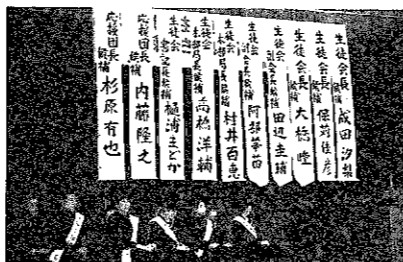 生徒会長候補 成田汐梨
生徒会長候補 保苅佳彦
生徒会長候補 大橋瞳
生徒会副会長候補 田辺圭輔
生徒会 候補 阿部華苗
生徒会 本部局長候補 村井百恵
生徒会本部局長候補 高橋洋輔
生徒会 候補 樋浦まどか
応援団長候補 内藤隆之
応援団長候補 杉原有也